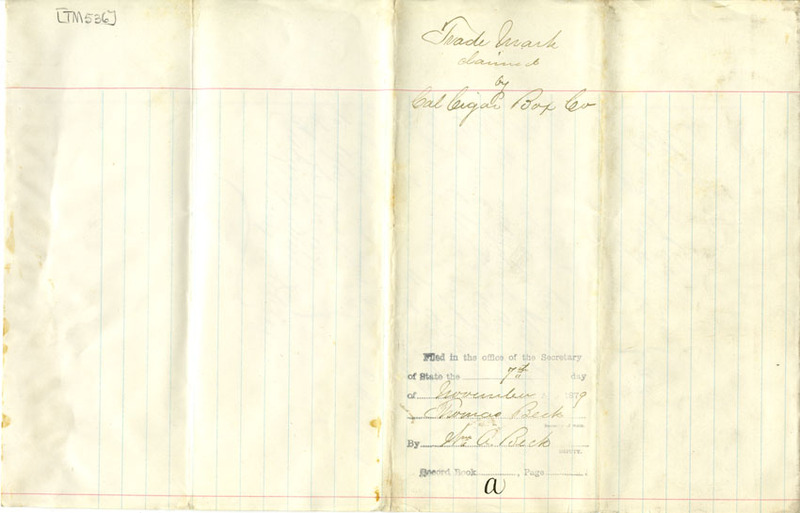 [TM536]
Trade Mark
claimed
by
Cal Cigar Box Co
Filed in the office of the Secretary
of State the 7th day
of November 1879
Thomas Beck
Secretary of State.
By Wm C. Beck
DEPUTY.
Record Book , Page .
a